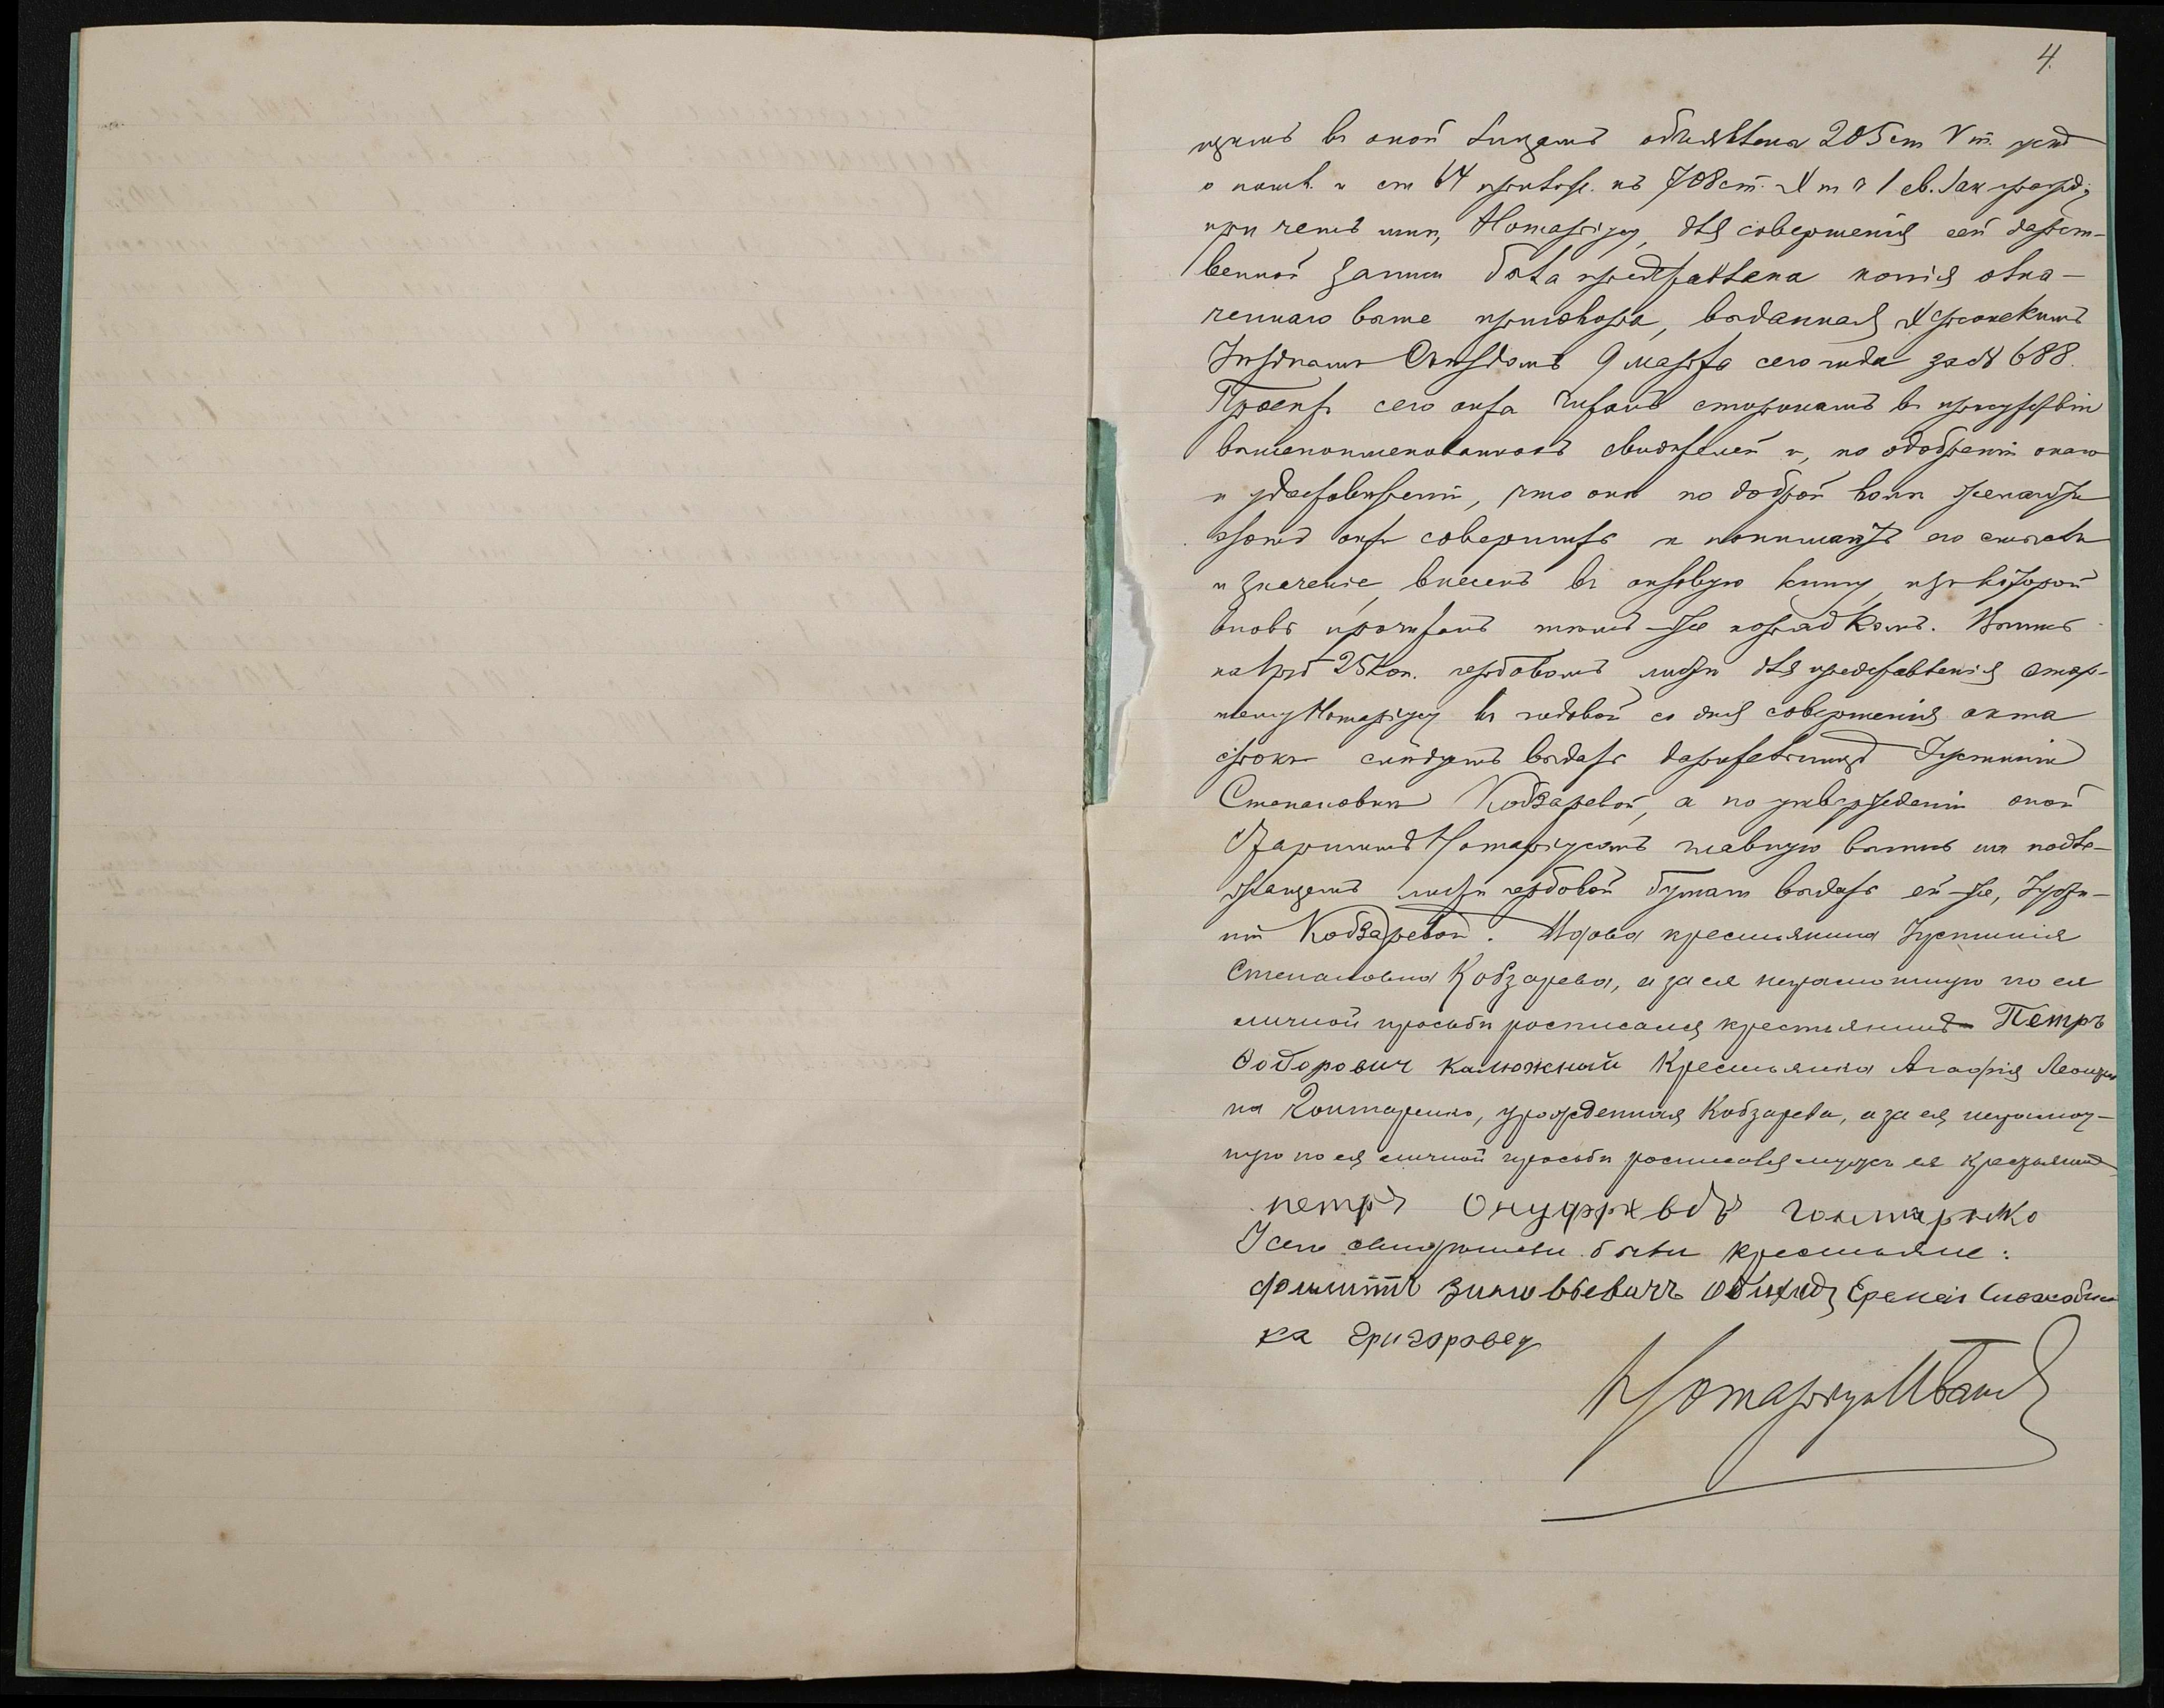 4.
щимъ въ оной лицамъ объявлена 205 ст V т. уст
о пошл. и ст 64 прилож. къ 708 ст. X т ч 1 св. Зак гражд;
при чемъ мнѣ, Нотаріусу, для совершенія сей дарст-
венной записи была представлена копія озна-
ченнаго выше приговора, выданная Херсонскимъ
Уѣзднымъ Съѣздомъ 9 марта сего года за № 688.
Проектъ сего акта читанъ сторонамъ въ присутствіи
вышепоименованныхъ свидѣтелей и, по одобреніи онаго
и удостовѣреніи, что они по доброй волѣ желаютъ
этотъ актъ совершить и понимаютъ его смыслъ
и значеніе, внесенъ въ актовую книгу, изъ которой
вновь прочитанъ тѣмъ-же порядкомъ. Выпись
на 25 коп. гербовомъ листѣ для представленія Стар-
шему Нотаріусу въ годовой со дня совершенія акта
срокъ слѣдуетъ выдать дарительницѣ Іустиніи
Степановнѣ Кобзаревой, а по утвержденіи оной
Старшимъ Нотаріусомъ главную выпись на подле-
жащемъ листѣ гербовой бумаги выдать ей-же, Іусти-
ніи Кобзаревой. Вдова крестьянина Іустинія
Степановна Кобзарева, а за ея неграмотную по ея
личной просьбѣ росписался крестьянинъ Петръ
Федорович калюжный Крестьянка Агафія
на Гонтаренко, урожденная Кобзарева, а за ея неграмот-
ную по ея личной просьбѣ росписался мужъ ея крестьянинъ
петръ Онуфріевъ гонтаренко
У сего свидѣтели были крестьяне:
филиппъ зиновьевичъ Еремей
ка Григоровеч
Нотаріусъ